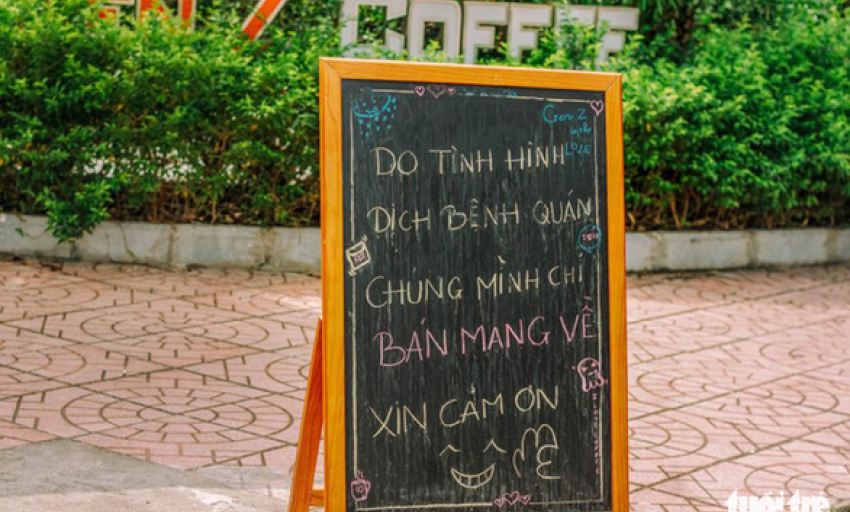 COFFEE
Gen Z
LOVE
DO TÌNH HÌNH
DỊCH BỆNH QUÁN
CHÚNG MÌNH CHỈ
BÁN MANG VỀ
XIN CẢM ƠN
tuổi trẻ